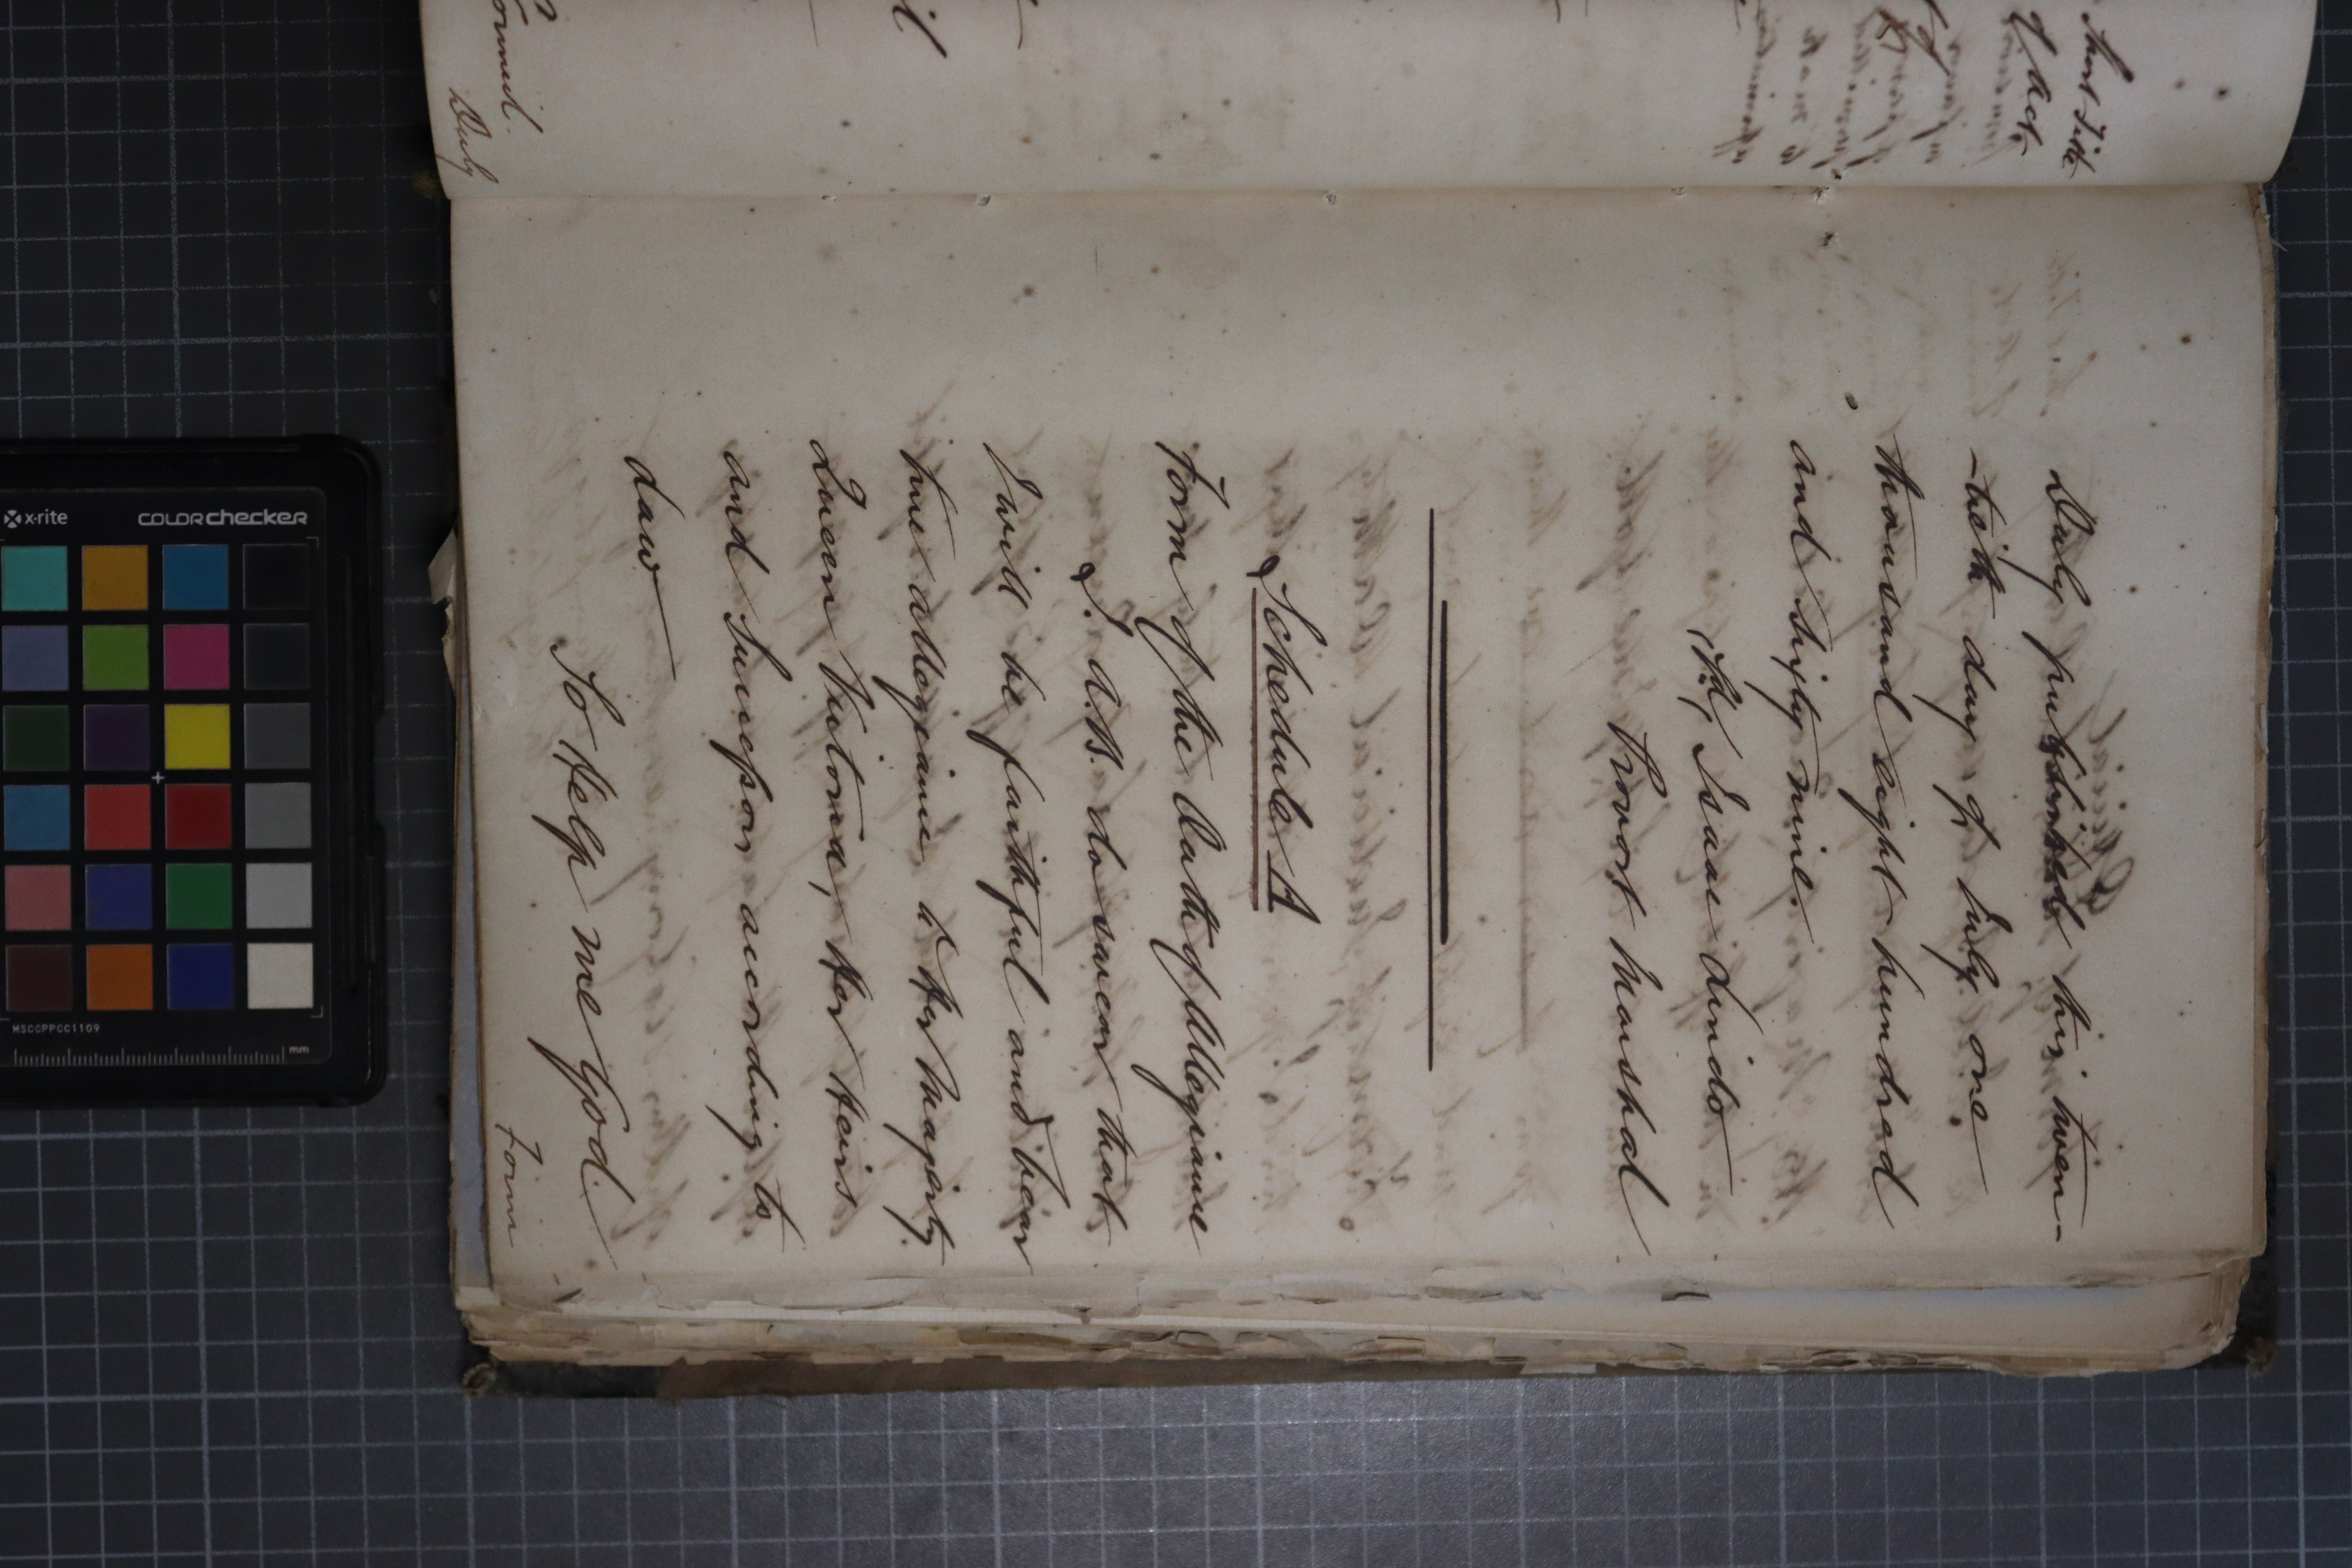 Short Title
of Act
Council.
Duly
Duly published this twen-
-tieth day of July one
thousand eight hundred
and sixty nine
(Sd) Isaac Lindo
Provost Marshal
Schedule A
Form of the Oath of Allegiance
I. A.B. do swear that
I will be faithful and bear
true allegiance to Her Majesty
Queen Victoria, Her Heirs
and Successors according to
Law
So Help me God.
Form
xrite
COLORchecker
MSCCPPCC1109
mm